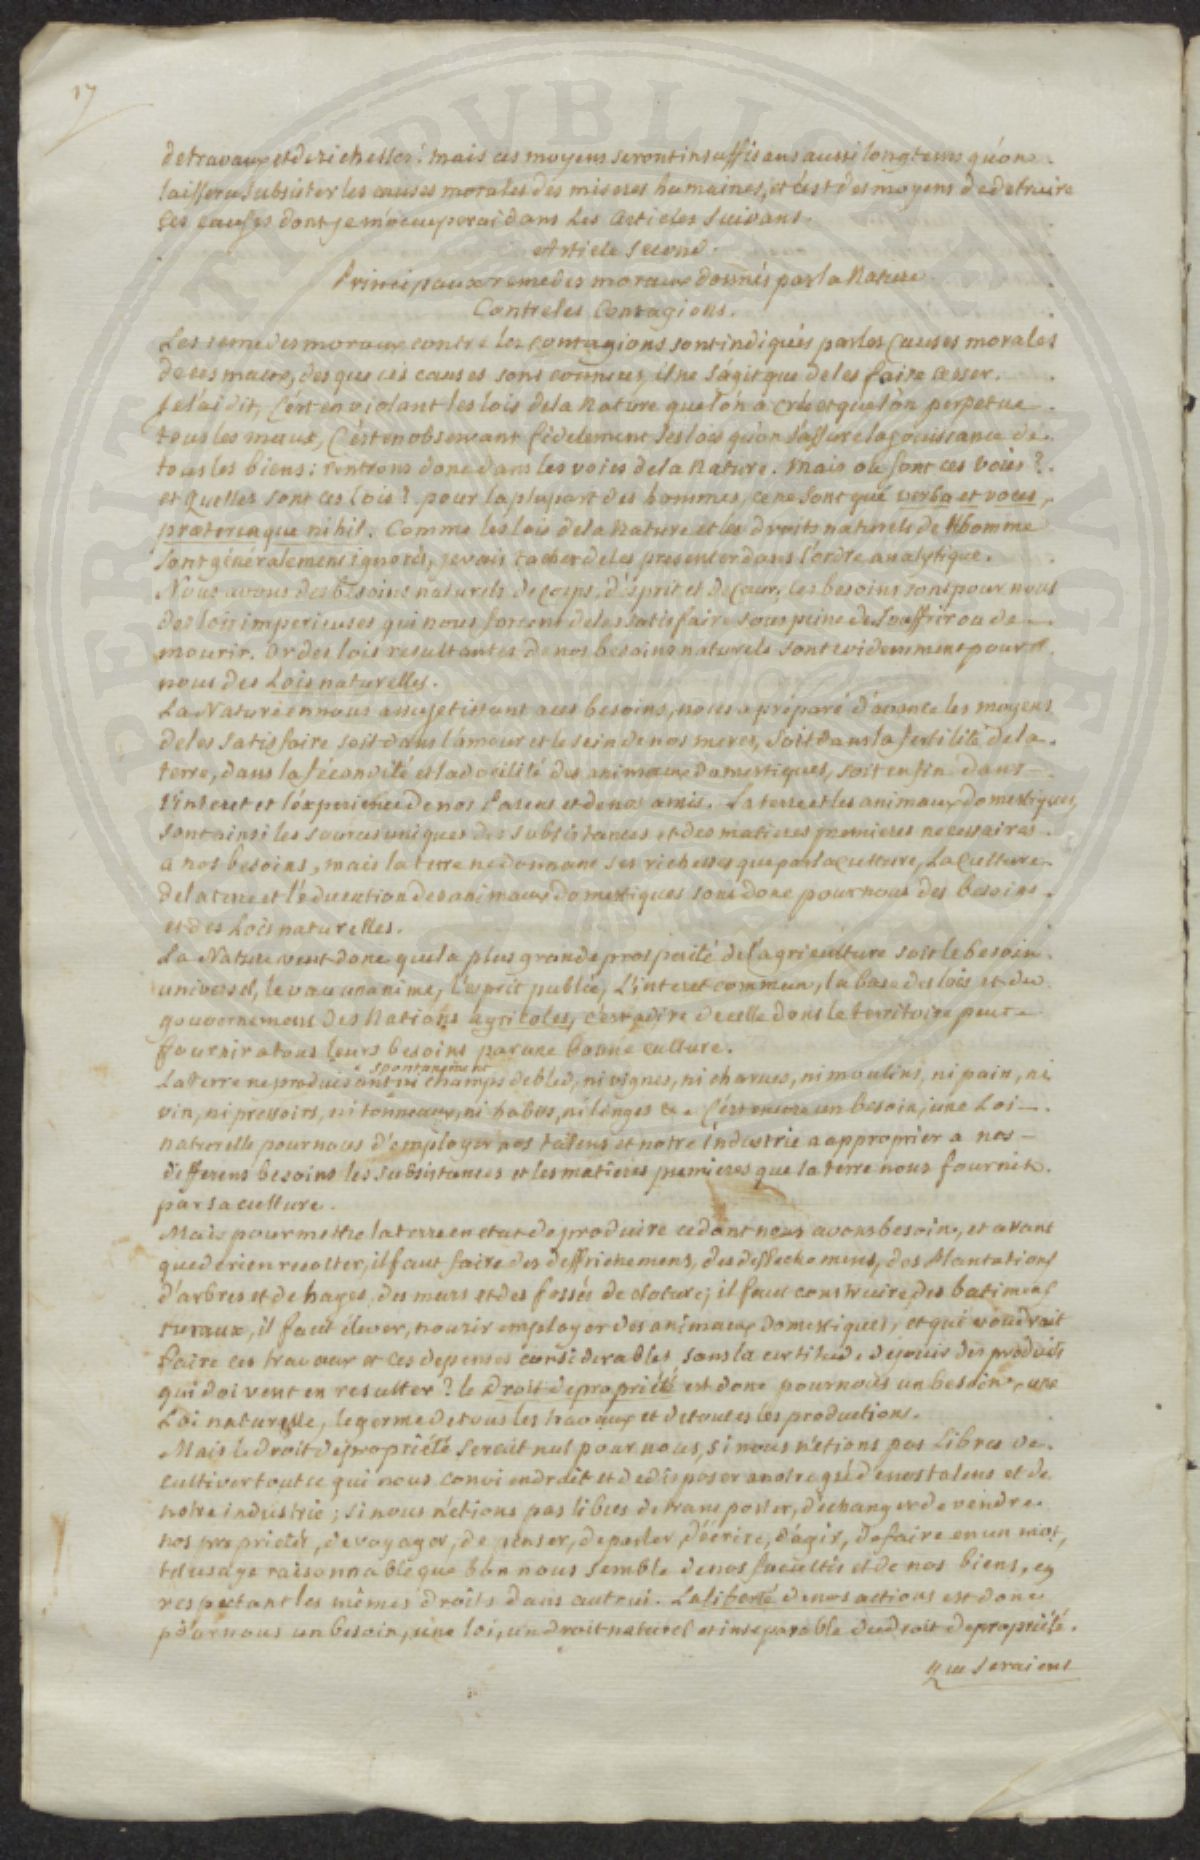 17
de travaux et de richesses: mais ces moyens seront insuffisans aussi longtems qu'on
laissera subsister les causes morales des miseres humaines, et c'est des moyens de detruire
ces causes dont je m'occuperai dans les articles suivans.
Article Second.
Principaux remedes moraux donnés par la Nature
Contre les Contagions.
Les remedes moraux contre les contagions sont indiqués par les Causes morales
de ces maux, des que ces causes sont connues, il ne s'agit que de les faire cesser.
Je l'ai dit, C'est en violant les lois de la Nature que l'on a créé et que l'on perpetue
tous les maux, C'est en observant fidelement ses lois qu'on s'assure la jouissance de
tous les biens: rentrons donc dans les voies de la Nature. Mais où sont ces voies?
et quelles sont ces lois? pour la plupart des hommes, ce ne sont que verba et voces,
prætereaque nihil. Comme les lois de la Nature et les droits naturels de l'homme
sont généralement ignorés, je vais tacher de les presenter dans l'ordre analytique.
Nous avons des besoins naturels de corps, d'esprit et de cœur, les besoins sont pour nous
des lois imperieuses qui nous forcent de les satisfaire sous peine de souffrir ou de
mourir. Or des lois resultantes de nos besoins naturels sont evidemment pour
nous des Lois naturelles.
La Nature en nous assujetissant a ces besoins, nous a préparé d'avance les moyens
de les satisfaire soit dans l'amour et le sein de nos meres, soit dans la fertilité de la
terre, dans la fécondité et la docilité des animaux domestiques, soit enfin dans
l'interet et l'experience de nos Parens et de nos amis. La terre et les animaux domestiques
sont ainsi les sources uniques des subsistances et des matieres premieres necessaires
a nos besoins, mais la terre ne donnant ses richesses que par la culture, La Culture
de la terre et l'éducation des animaux domestiques sont donc pour nous des besoins
et des Lois naturelles.
La Nature veut donc que la plus grande prosperité de l'agriculture soit le besoin
universel, le vœu unanime, l'esprit public, L'interet commun, la base des lois et du
gouvernement des Nations agricoles, c'est a dire de celle dont le territoire peut
fournir a tous leurs besoins par une bonne culture.
spontanément
La terre ne produisant ni champs de bled, ni vignes, ni charues, ni moulins, ni pain, ni
vin, ni pressoirs, ni tonneaux, ni habits, ni linges &c. C'est encore un besoin, une Loi
naturelle pour nous d'employer nos talens et notre industrie a approprier a nos
differens besoins les subsistances et les matieres premieres que la terre nous fournit
par sa culture.
Mais pour mettre la terre en etat de produire ce dont nous avons besoin, et avant
que de rien recolter, il faut faire des deffrichemens, des dessechemens, des Plantations
d'arbres et de hayes, des murs et des fossés de cloture; il faut construire des batimens
ruraux, il faut élever, nourir employer des animaux domestiques, et qui voudrait
faire ces travaux et ces depenses considerables sans la certitude de jouir des produits
qui doivent en resulter? le Droit de propriété est donc pour nous un besoin, une
Loi naturelle, le germe de tous les travaux et de toutes les productions.
Mais le droit de propriété serait nul pour nous, si nous n'etions pas Libres de
cultiver tout ce qui nous conviendrait et de disposer a notre gré de nos talens et de
notre industrie; si nous n'etions pas libres de transporter, d'échanger de vendre
nos proprietés, de voyager, de penser, de parler, d'écrire, d'agir, de faire en un mot,
tel usage raisonnable que bon nous semble de nos facultés et de nos biens, en
respectant les mêmes droits dans autrui. La liberté de nos actions est donc
pour nous un besoin, une loi, un droit naturel et inseparable du droit de propriété.
Que seraient